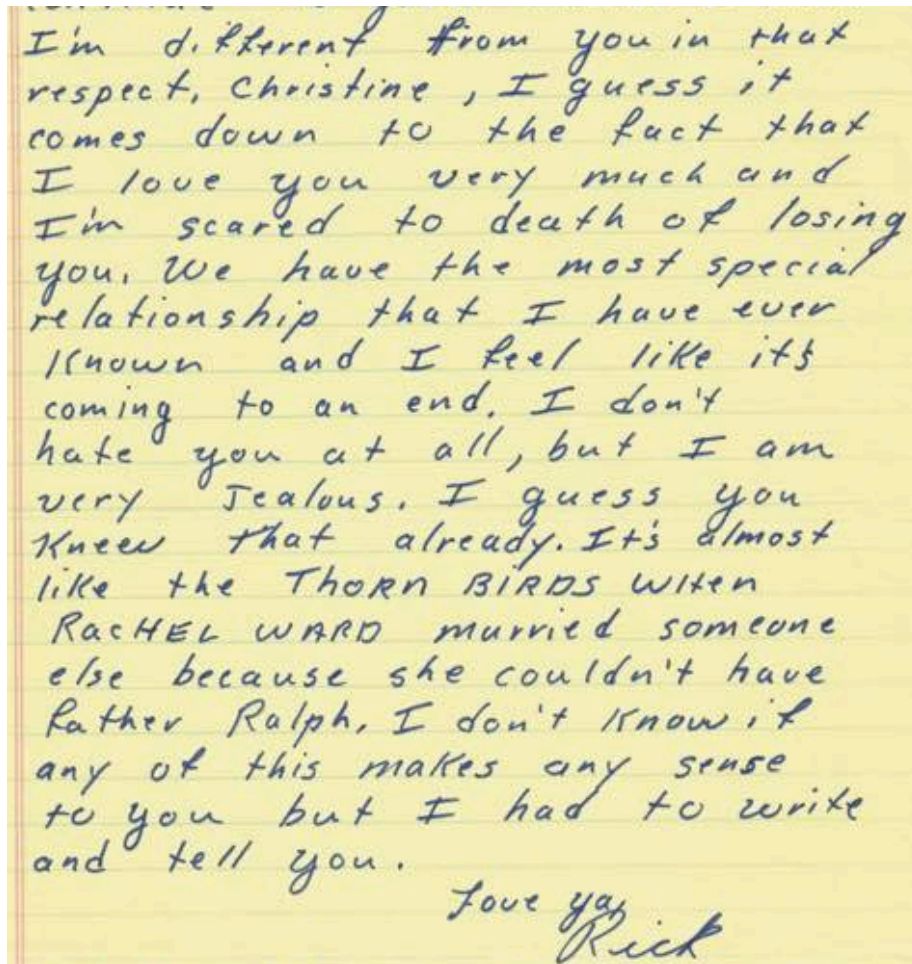 I'm different from you in that
respect, Christine, I guess it
comes down to the fact that
I love you very much and
I'm scared to death of losing
you. We have the most special
relationship that I have ever
known and I feel like it's
coming to an end. I don't
hate you at all, but I am
very Jealous. I guess you
Knew that already. It's almost
like the THORN BIRDS WHEN
RACHEL WARD married someone
else because she couldn't have
Father Ralph. I don't know if
any of this makes any sense
to you but I had to write
and tell you.
Love ya,
Rick